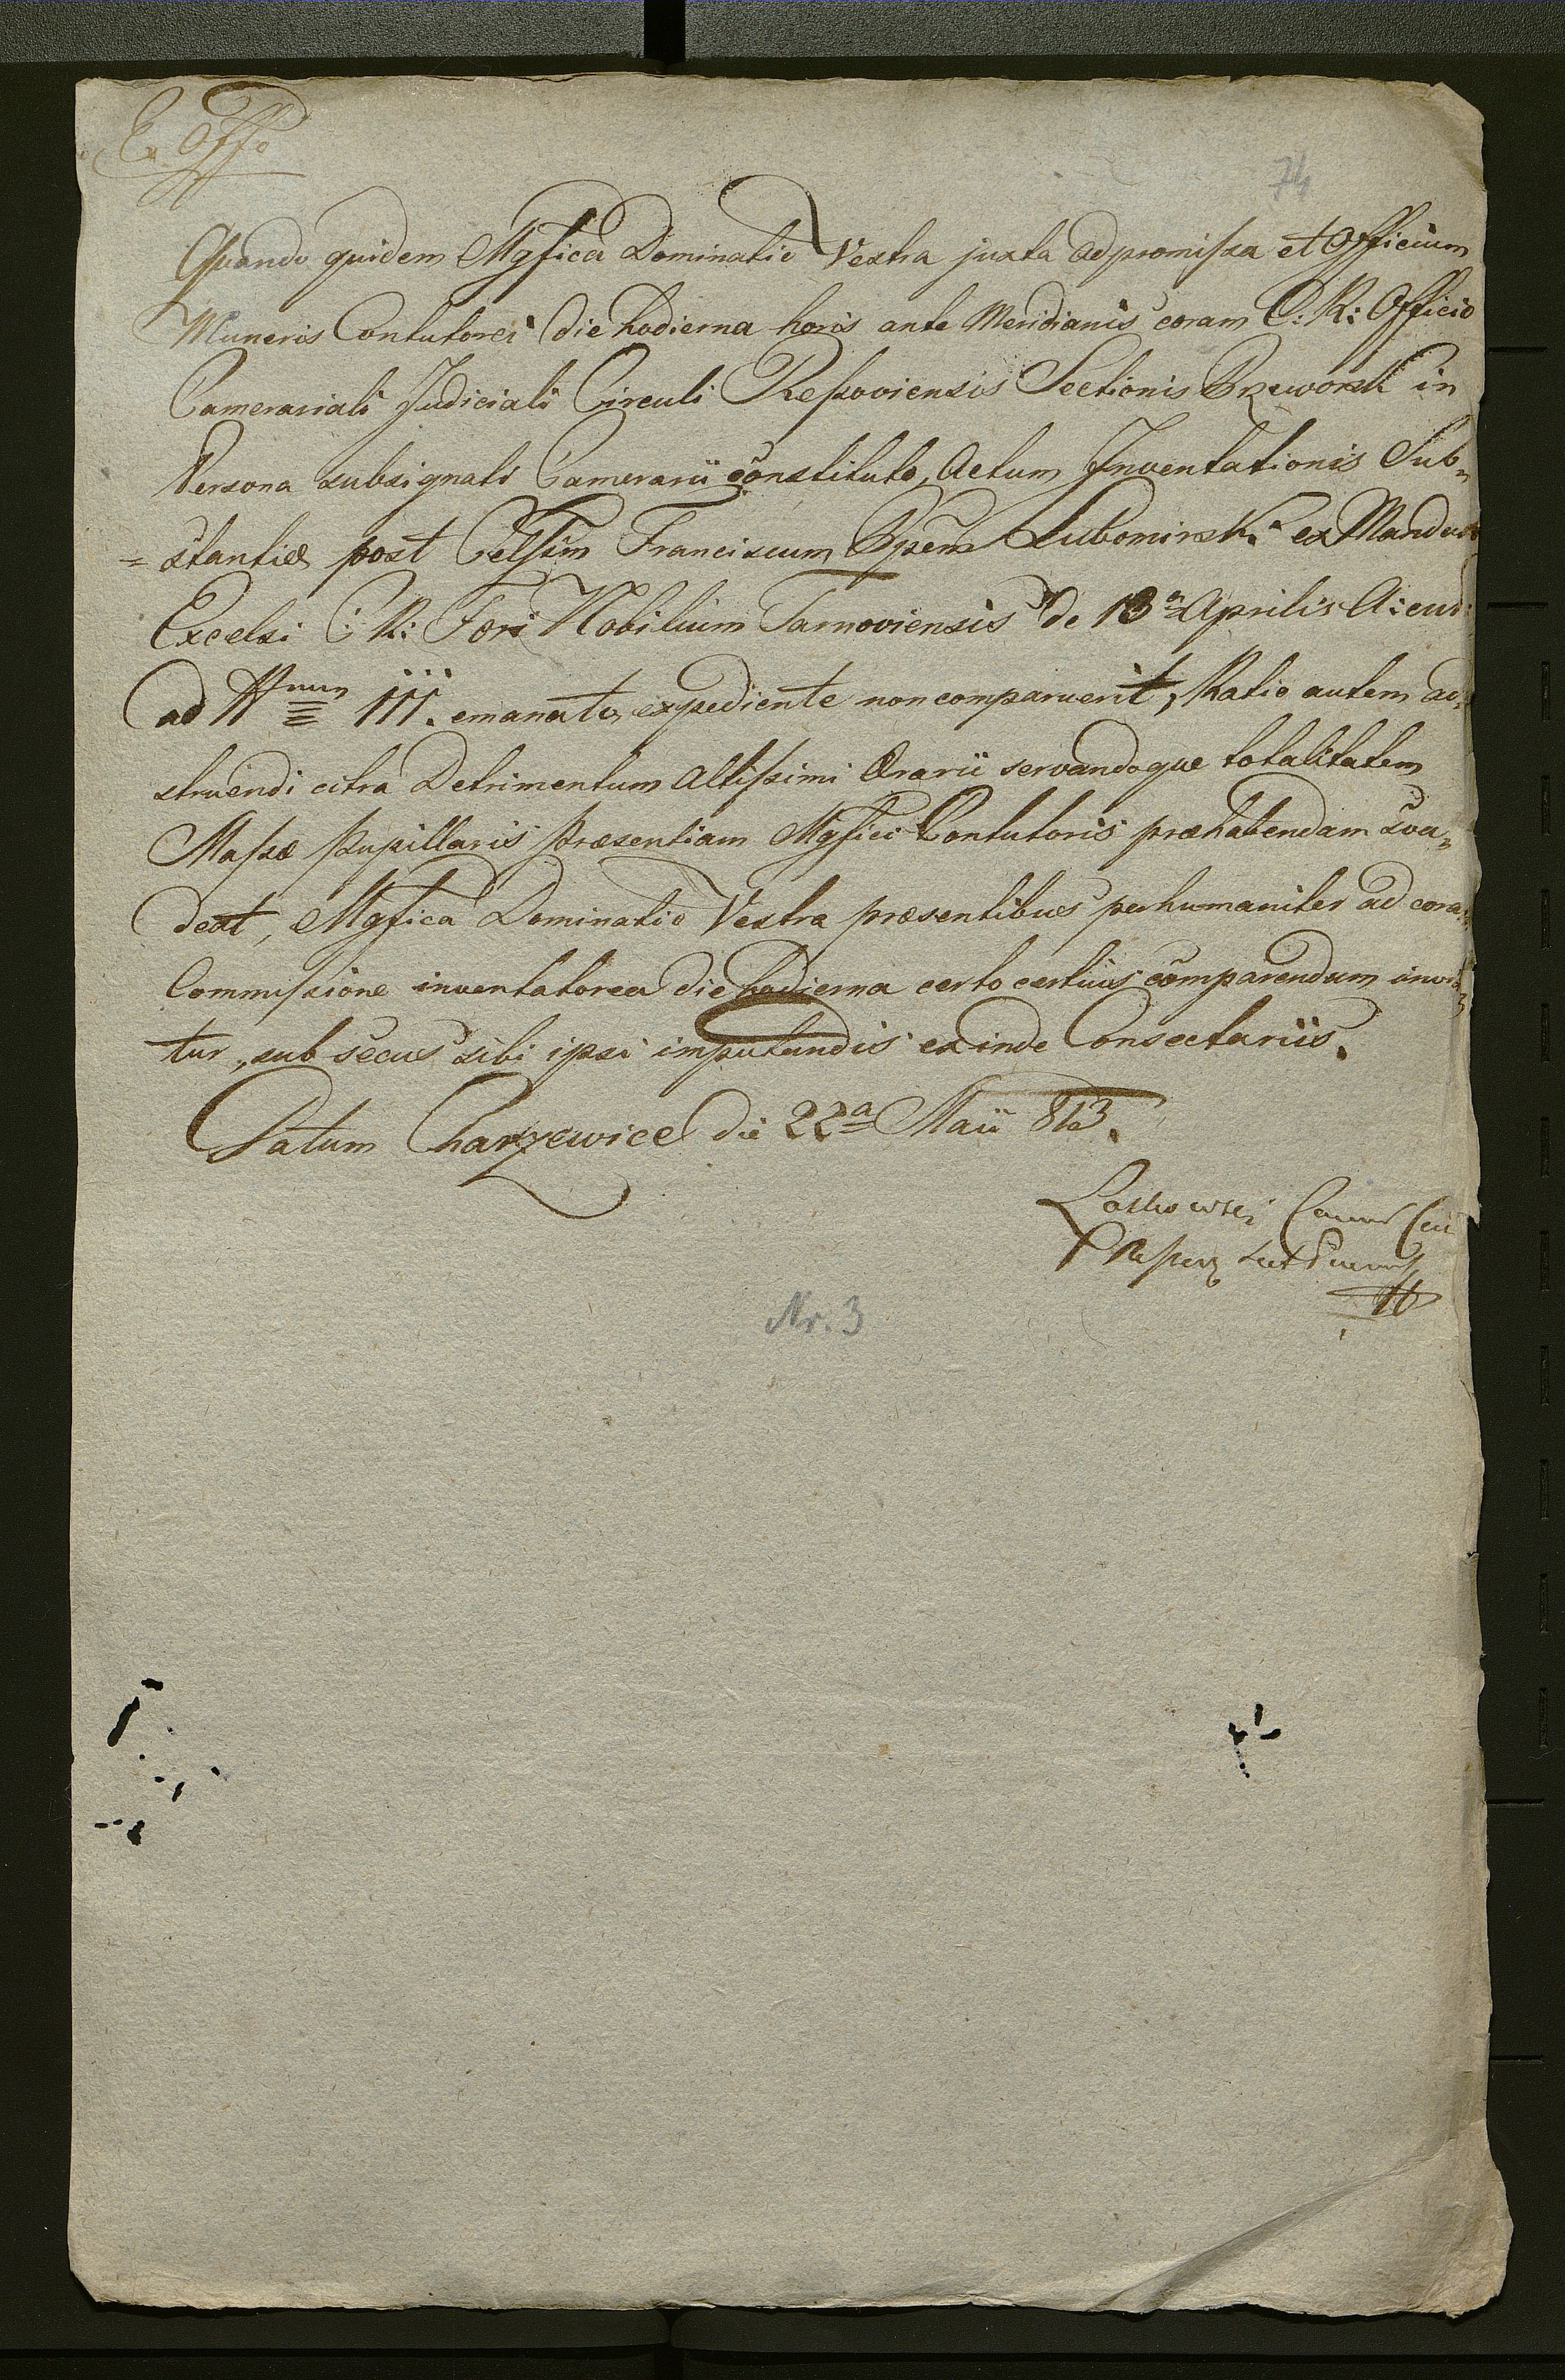 Ex Offo
74
Quando quidem Mgfica Dominatio Vestra juxta adpromissa et Officium
Muneris Contutorei die hodierna horis ante Meridianis coram C: R: Officio
Camerariali Judiciali Circuli Ressoviensis Sectionis Przeworsk in
Persona subsignati Camerarii constituto, Actum Inventationis Sub-
=stantiæ post Celssm Franciscum Ppem Lubomirski ex Mandato
Excelsi C: R: Fori Nobilium Tarnoviensis de 13a Aprilis A: cur:
ad Nrum 111. emanato, expediente non comparuerit, Ratio autem ad-
struendi citra Detrimentum Altissimi Ærarii servandoque totalitatem
Massæ pupillaris præsentiam Mgfici Contutoris præhabendam sva-
deat, Mgfica Dominatio Vestra præsentibus perhumaniter ad cora
Commissione inventatorea die hodierna certo certius comparendum invita
tur, sub secus sibi ipsi imputandis ex inde Consectariis.
Datum Charzewice die 22a Maii 813.
Laskowski
Nr. 3